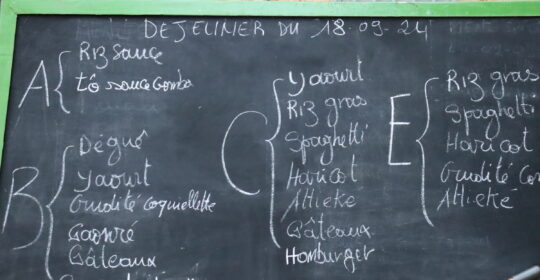 DEJEUNER DU 18-09-24
A
Riz sauce
tô sauce Gombo
B
Dégué
Yaourt
Crudité Coquellette
Gaonré
Gâteaux
C
Yaourt
Riz gras
Spaghetti
Haricot
Attieké
Gâteaux
Hamburger
E
Riz gras
Spaghetti
Haricot
Crudité Co
Attieké